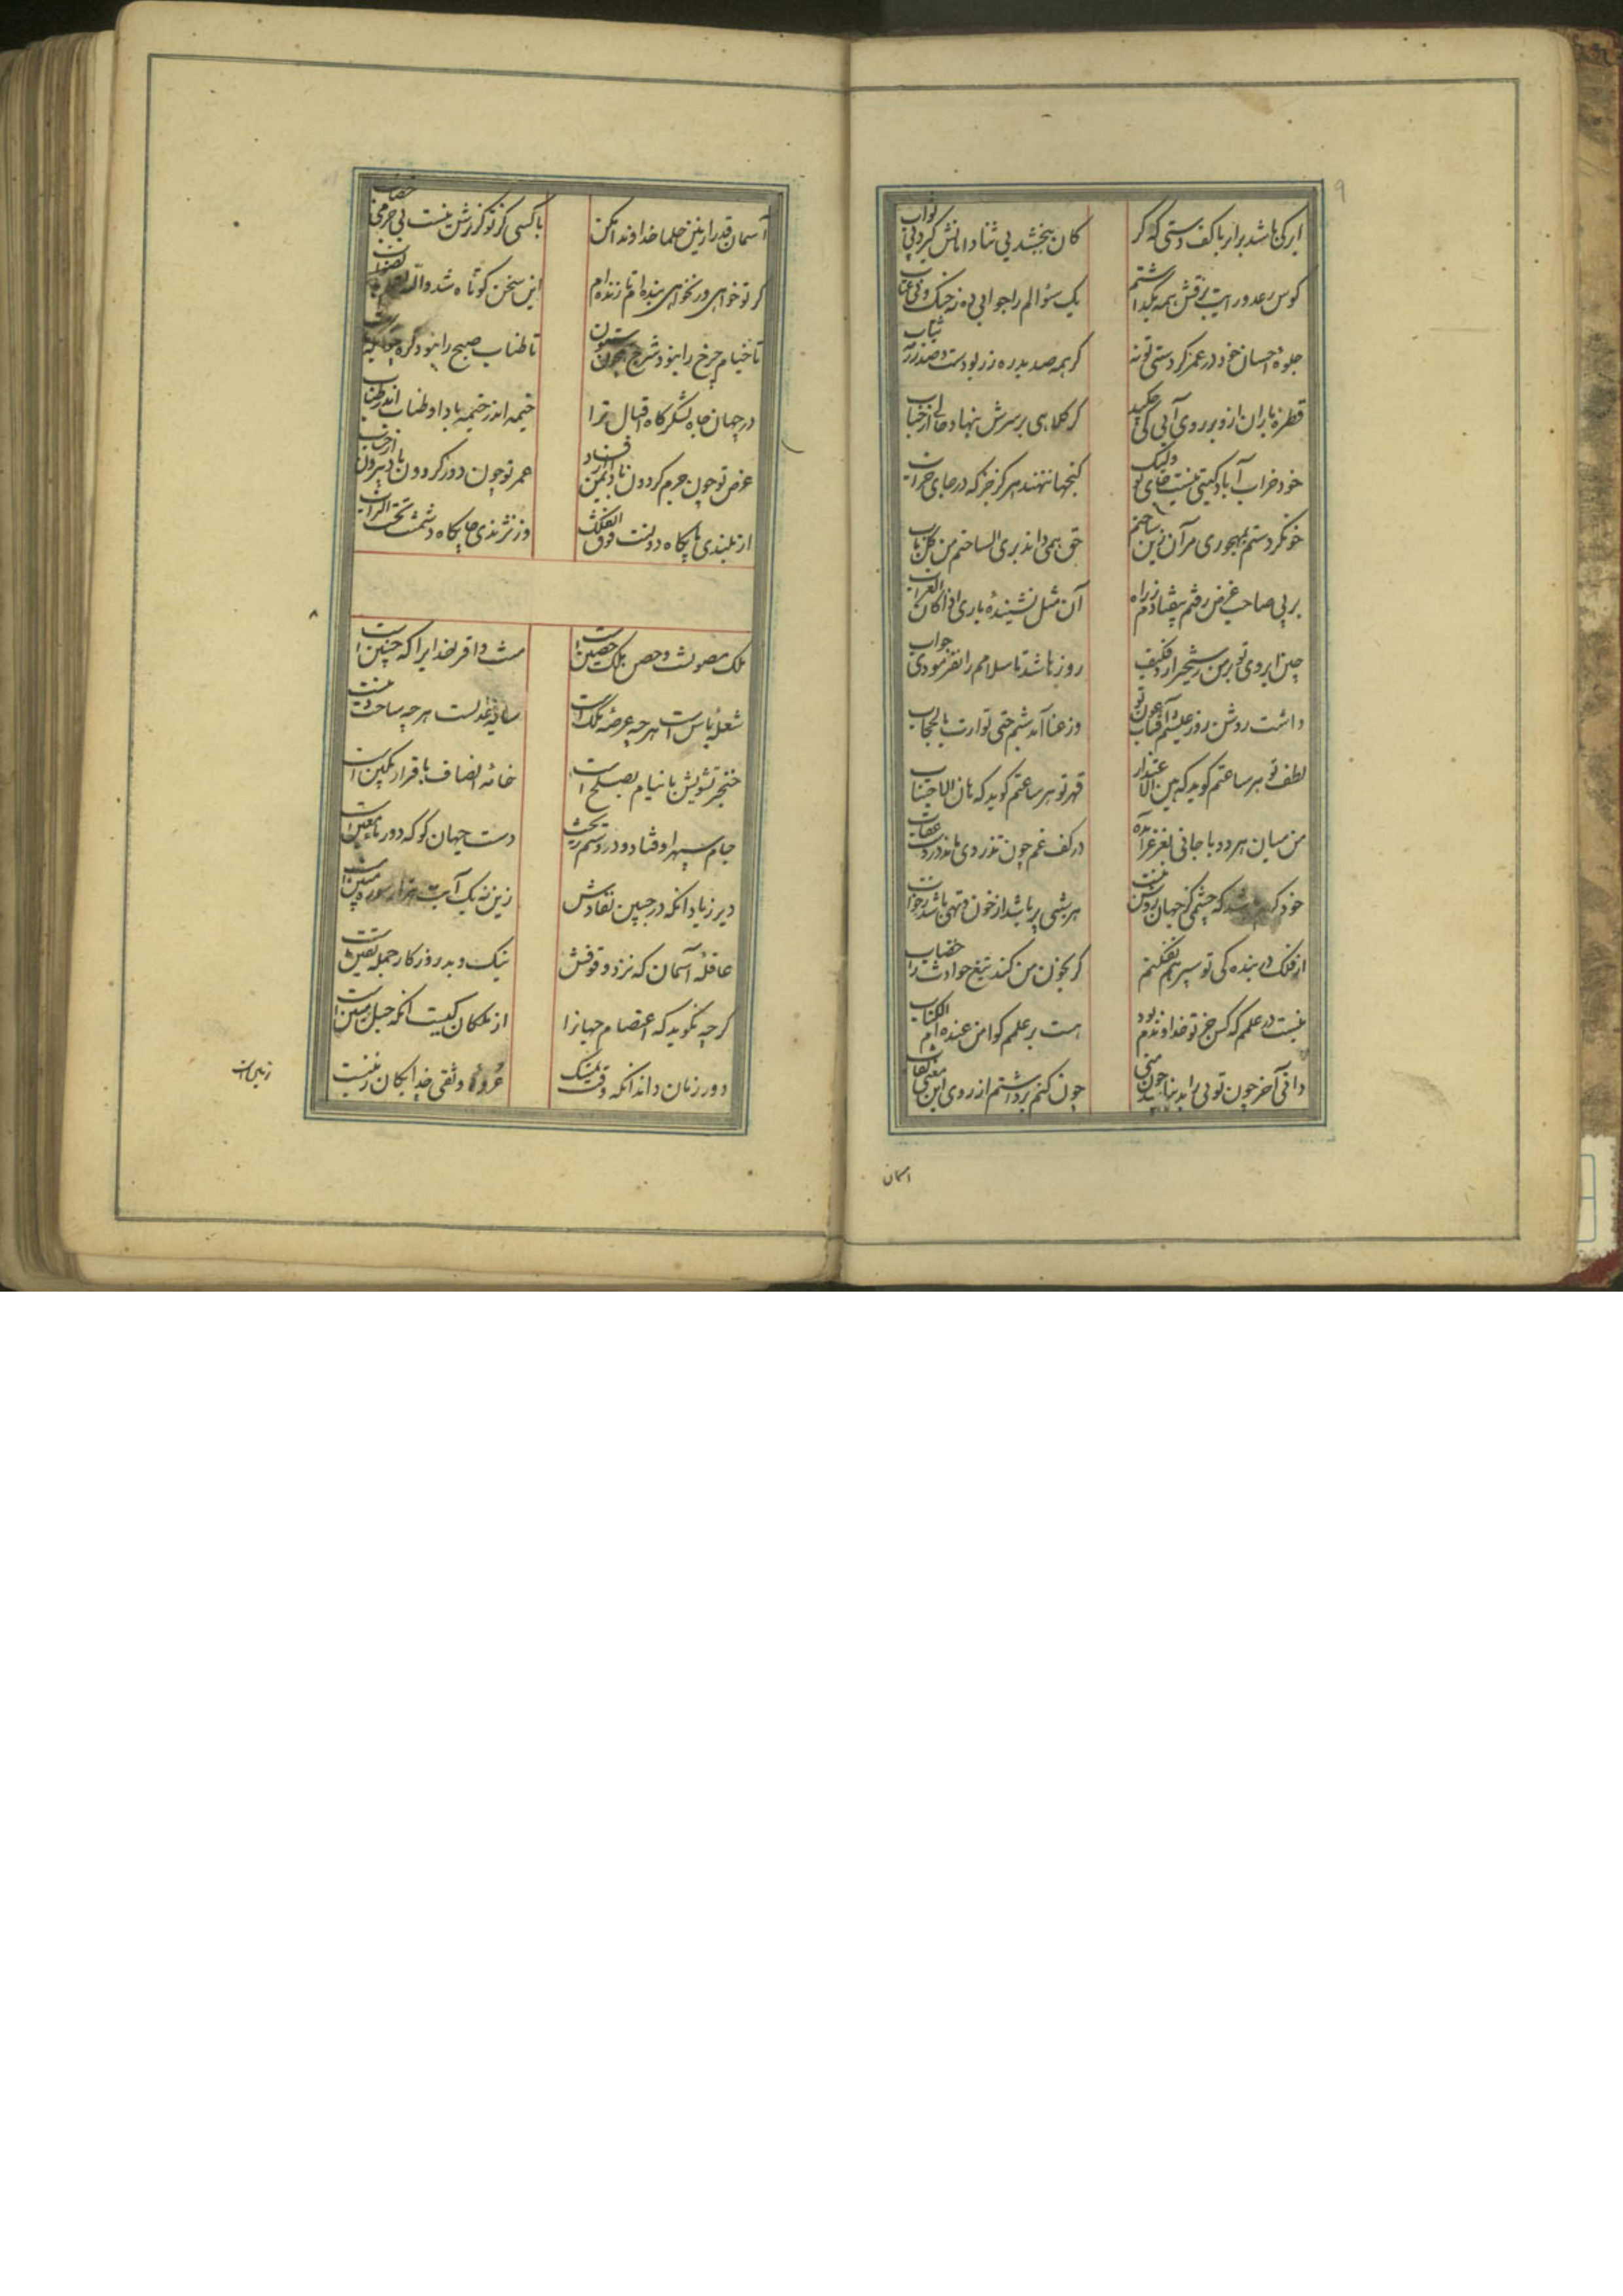 ابر کی باشد برابر با کف دستی که گر
کان ببخشد بی ثنا و آنانش گیرد بی ثواب
کوس رعد و رایت برقش همه بگذاشتم
یک سؤالم را جوابی ده نه جنگ و نی عتاب
جلوهٔ احسان خود در عمر کردستی تو نه
گر همه صد بدره زر بودست و صد رزمه ثیاب
قطرهٔ باران ازو بر روی آبی کی چکید
کز کلاهی بر سرش ننهاد حالی از حباب
خود خراب آباد گیتی نیست جای تو ولیک
گنجها ننهند هرگز جز که در جای خراب
خو نکردستم بمهجوری مرآن زین ساختم
حق همی داند بری الساحتم من کل باب
بر پی صاحب غرض رفتم بیفتادم ز راه
آن مثل نشنیدهٔ باری اذا کان الغراب
چین ابروی تو بر من رستخیز آرد فکیف
روزها شد تا سلامم را نفرمودی جواب
داشت روشن روز عیشم آفتاب عون تو
وز عنا آمد شبم حتی توارت بالحجاب
لطف تو هر ساعتم گوید که هین الاعتذار
قهر تو هر ساعتم گوید که هان الاجتناب
من میان هر دو با جانی بغرغر آمده
در کف غم چون تذروی مانده در دست عقاب
خود که باشد که چشمی کز جهان روشن نیست
هر شبی پر باشد از خون و تهی باشد ز خواب
از فلک در بنده کی تو سپر هم نفکنم
گر بخون من کند تیغ حوادث را خضاب
نیست در علمم که کس جز تو خداوندم بود
هست بر علمم گوا من عنده ام الکتاب
دانی آخر چون تویی را بد نباشد چون منی
چون کنم برداشتم از روی این معنی نقاب
آسمان
آسمان قدرا زمین حلما خداوندا مکن
با کسی کز تو گزرش نیست بی جرمی خطاب
گر تو خواهی ور نخواهی بنده ام تا زنده ام
این سخن کوتاه شد والله اعلم بالصواب
تا خیام چرخ را نبود شرج همچون ستون
تا طناب صبح را نبود گره
در جهان جاه لشکرگاه اقبال ترا
خیمه اندر خیمه باد و طناب اندر طناب
عرض تو چون جرم گردون باد ایمن از فساد
عمر تو چون دور گردون باد بیرون از حساب
از بلندی پایگاه دولتت فوق الفلک
وز نژندی جایگاه دشمنت تحت التراب
ملک مصونست و حصن ملک حصین است
منت وافر خدایرا که چنین است
شعلهٔ باس است هر چه عرصهٔ ملک است
سایهٔ عدلست هر چه ساحت دینست
خنجر تشویش با نیام بصلح است
خانهٔ انصاف با قرار مکین است
جام سپهر اوفتاد و درد ستم ریخت
دست جهان گو که دور ماء معین است
دیر زیاد آنکه در جبین نفاذش
زین نه یک آیت هزار سورهٔ مبین است
عاقلهٔ آسمان که نزد وقوفش
نیک و بد روزگار جمله یقین است
گرچه نگوید که اعتصام جهانرا
از ملکان کیست آنکه حبل متین است
دور زمان داند آنکه وقت تمسک
عروهٔ وثقی خدایگان زمینست